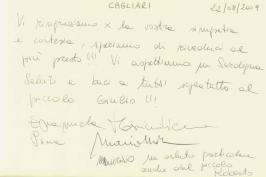 CAGLIARI 22/08/2009
Vi ringraziamo x la vostra simpatia
e cortesia, speriamo di rivederci al
più presto!!! Vi aspettiamo in Sardegna
Saluti e baci a tutti soprattutto al
piccolo Giulio!!!
un saluto particolare
anche dal piccolo
Roberto